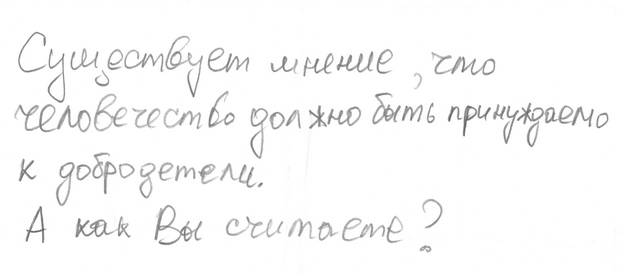 Существует мнение, что
человечество должно быть принуждаемо
к добродетели.
А как Вы считаете?